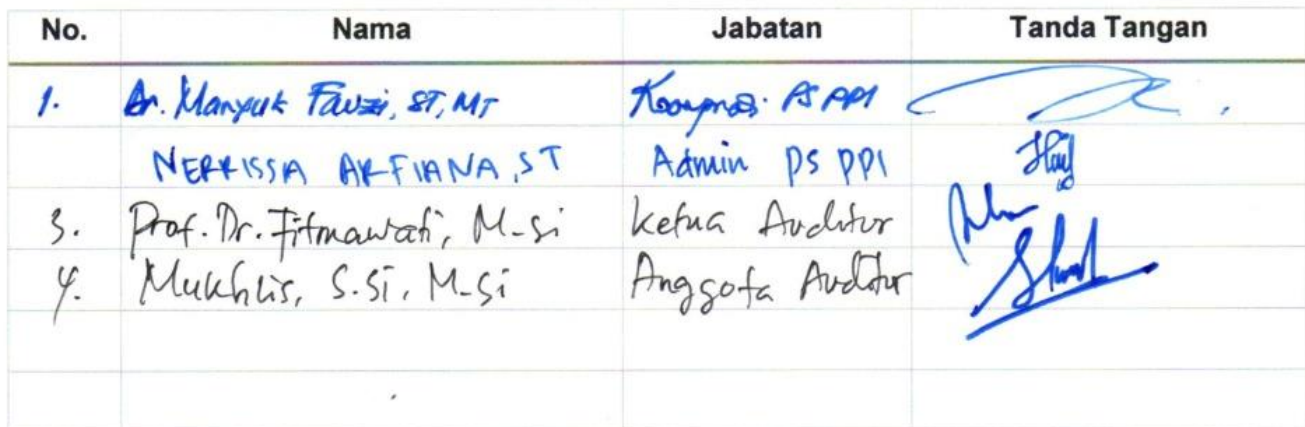 No. Nama Jabatan Tanda Tangan
1. Dr. Manyuk Fauzi, ST, MT PS PPI
NERRISSA ARFIANA, ST Admin PS PPI
3. Prof. Dr. Fitmawati, M-Si Ketua Auditor
4. Mukhlis, S.Si, M-Si Anggota Auditor